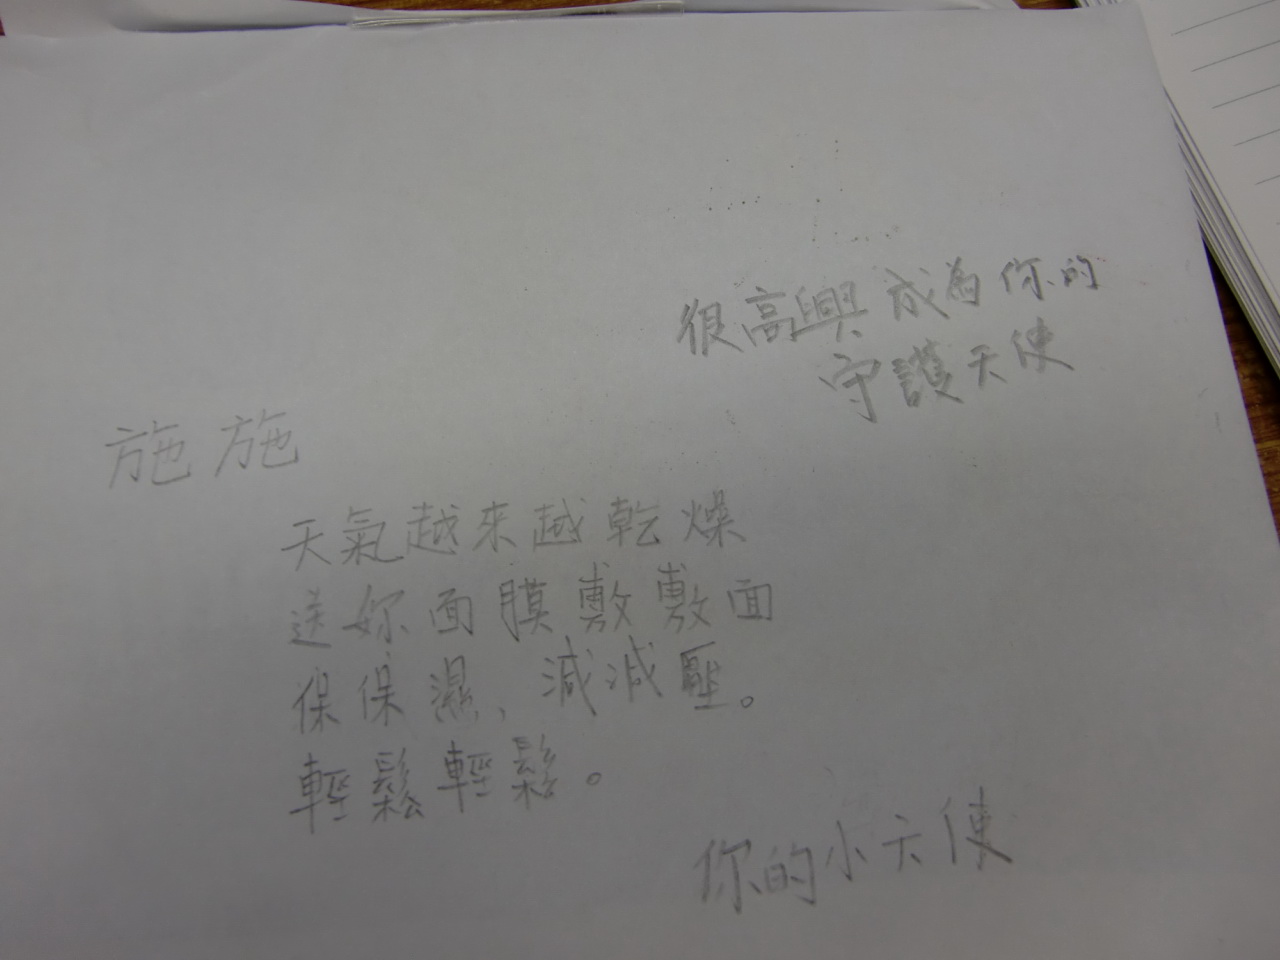 很高興成為你的
守護天使
施施
天氣越來越乾燥
送妳面膜敷敷面
保保濕、減減壓。
輕鬆輕鬆。
你的小天使